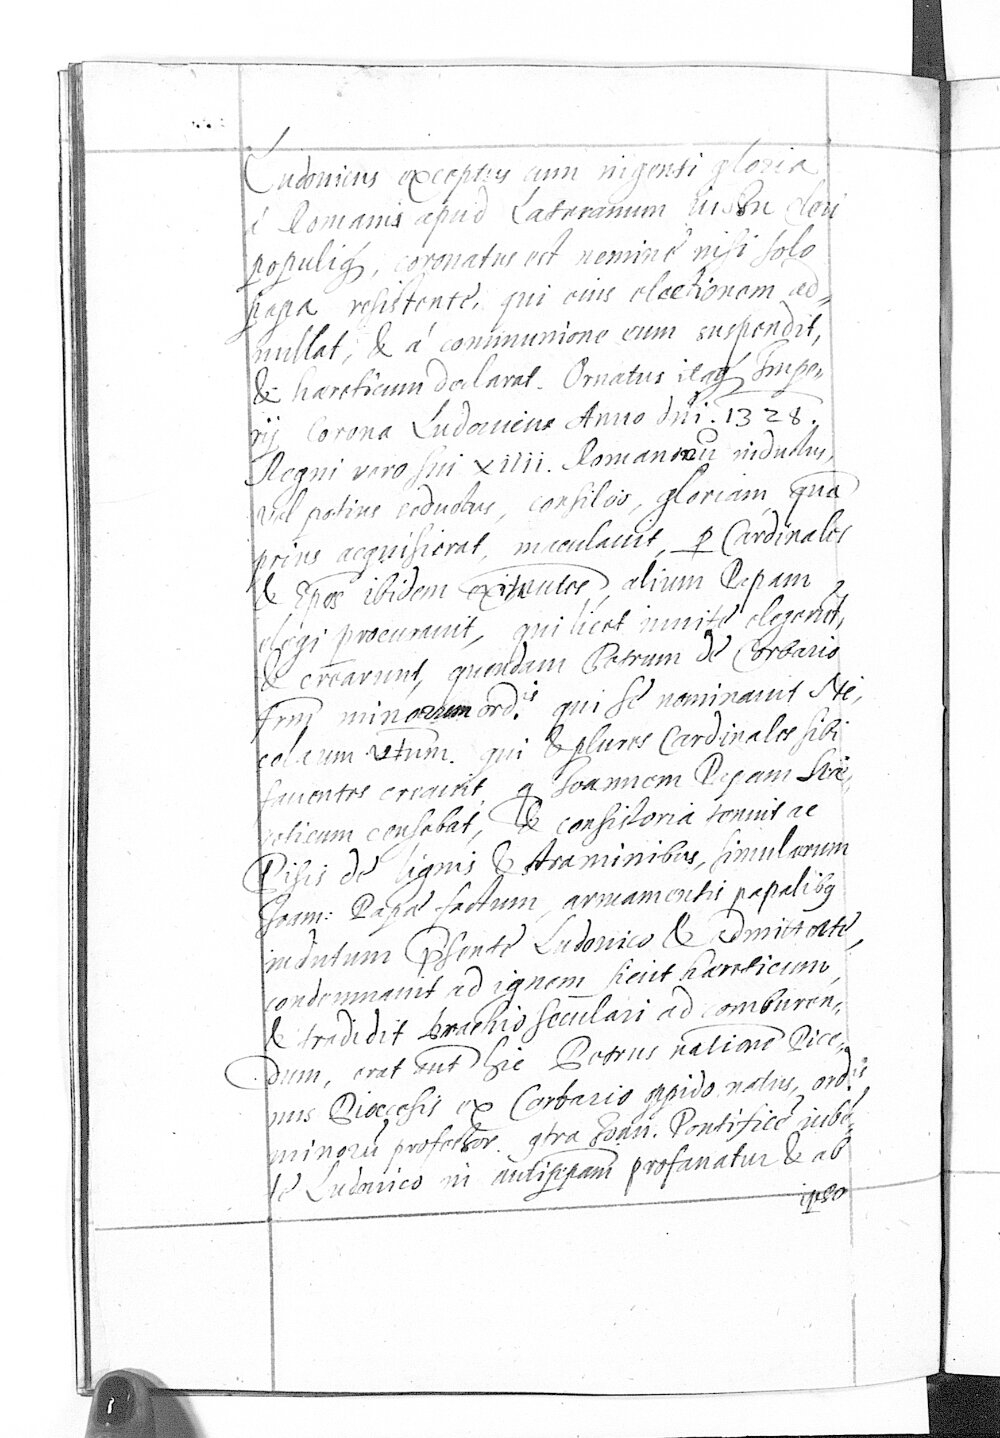 Ludovicus exceptus cum ingenti gloria
á Romanis apud Lateranum iussu cleri
populiq, coronatus est neminè nisi solo
papa resistentè, qui eius electionem ad-
nullat, & á communione eum suspendit,
& hæreticum declarat. Ornatus itaq Impe-
rij corona Ludovicus Anno dni. 1328.
Regni vero sui xiiii. Romanorũ inductus,
vel potius seductus, consilijs, gloriam, quã
prius acquisierat, maculavit, p Cardinales
& Epõs ibidem existentes, alium Papam
elegi procuravit, qui licet invitè elegerũt,
& crearunt, quendam Petrum dè Corbario
frẽm minorum ord.is qui se nominavit Ni-
colaum Vtum. qui & plures Cardinales sibi
faventes creavit, q Joannem Papam hære-
ticum censebãt, & consistoria tenuit ac
Pisis dè lignis & straminibus, simulacrum
Joan: Papæ factum, armamentis papalibq
indutum psentè Ludovico & admittentè,
condemnavit ad ignem sicut hæreticum,
& tradidit brachio sæculari ad comburen-
dum, erat aut hic Petrus nationè Pice-
nus Diocesis ex Corbario oppido natus, ord.is
minorũ professor. qtra Joan. Pontificẽ iubẽ-
te Ludovico in antipapam profanatur & ab
ipso